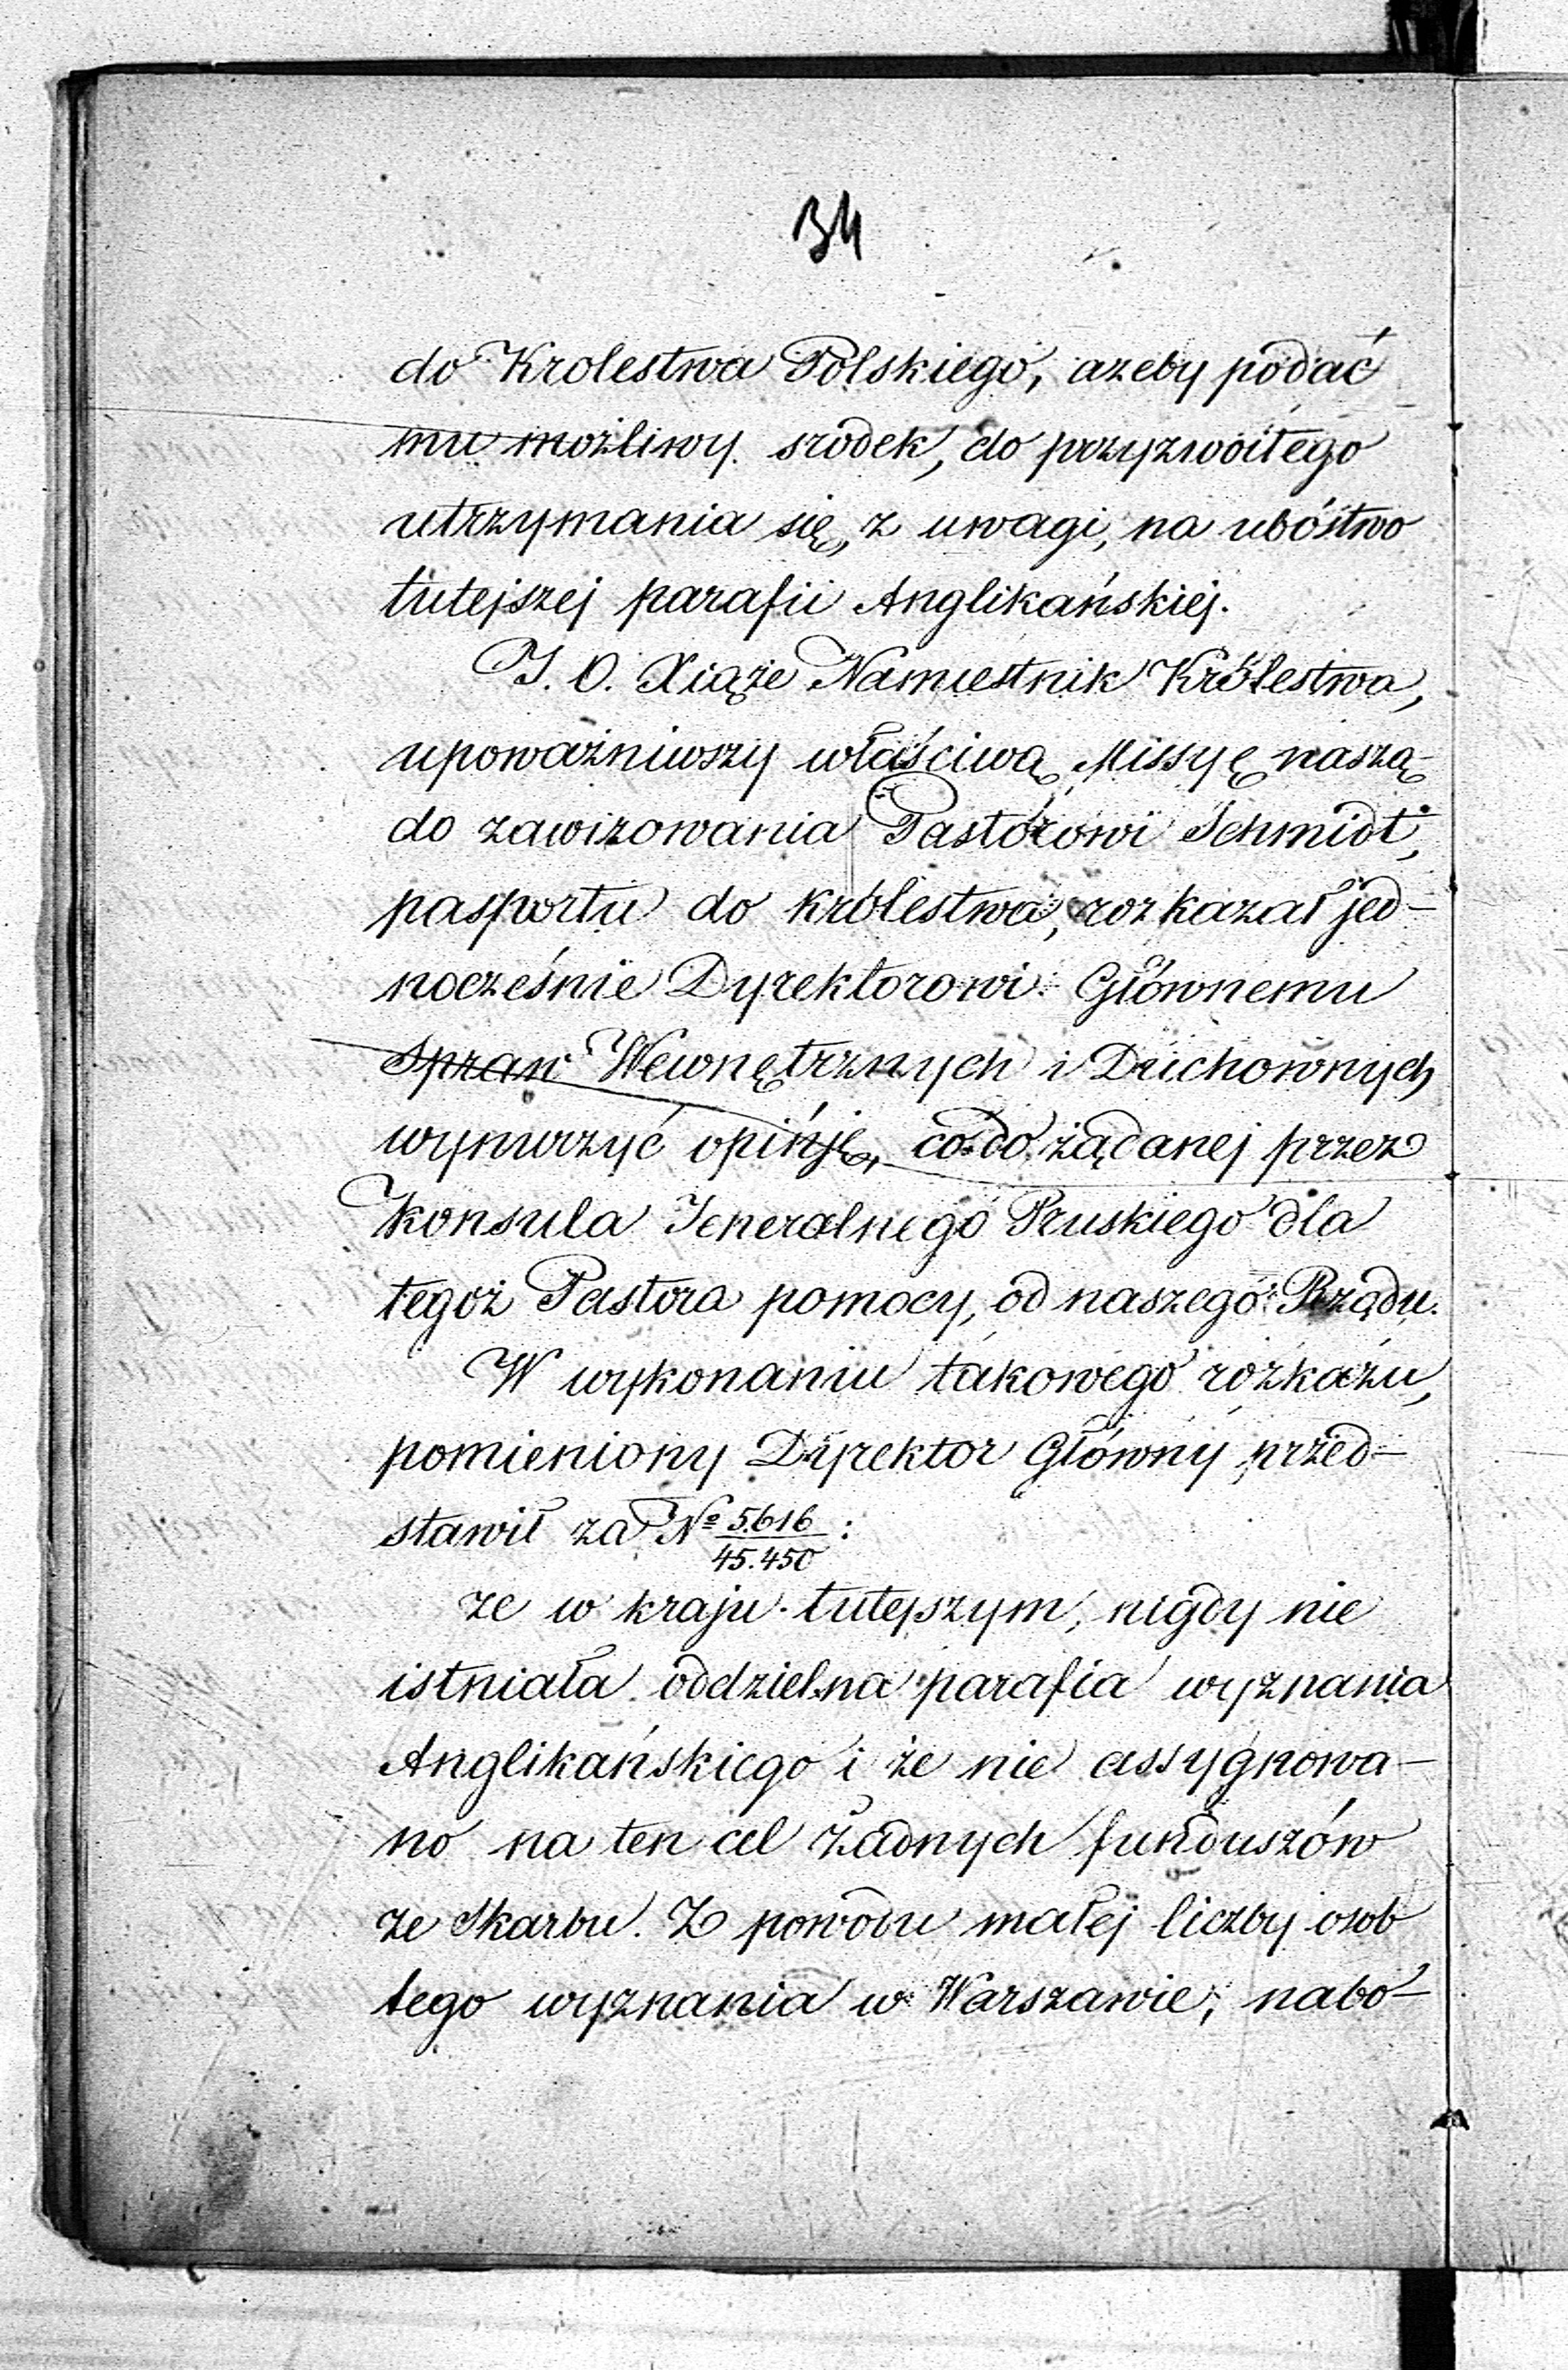 34
do Krolestwa Polskiego, azeby podać
mu możliwy srodek, do przyzwoitego
utrzymania się, z uwagi, na ubóstwo
tutejszej parafii Anglikańskiej.
J. O. Xiąże Namiestnik Królestwa,
upoważniwszy właściwą Missyę naszą
do zawizowania Pastórowi Schmidt,
pasportu do królestwa, rozkazał jed-
nocześnie Dyrektorowi Głównemu
Spraw Wewnętrznych i Duchownych
wynurzyć opinję, co do żądanej przez
Konsula Jeneralnego Pruskiego dla
tegoż Pastora pomocy, od naszego Rządu.
W wykonaniu takowego rozkazu,
pomieniony Dyrektor Główny przed-
stawił za Nº 5.616/45.450 :
ze w kraju tutejszym, nigdy nie
istniała oddzielna parafia wyznania
Anglikańskiego i że nie assygnowa-
no na ten cel żadnych funduszów
ze Skarbu. Z powodu małej liczby osob
tego wyznania w Warszawie, nabo-